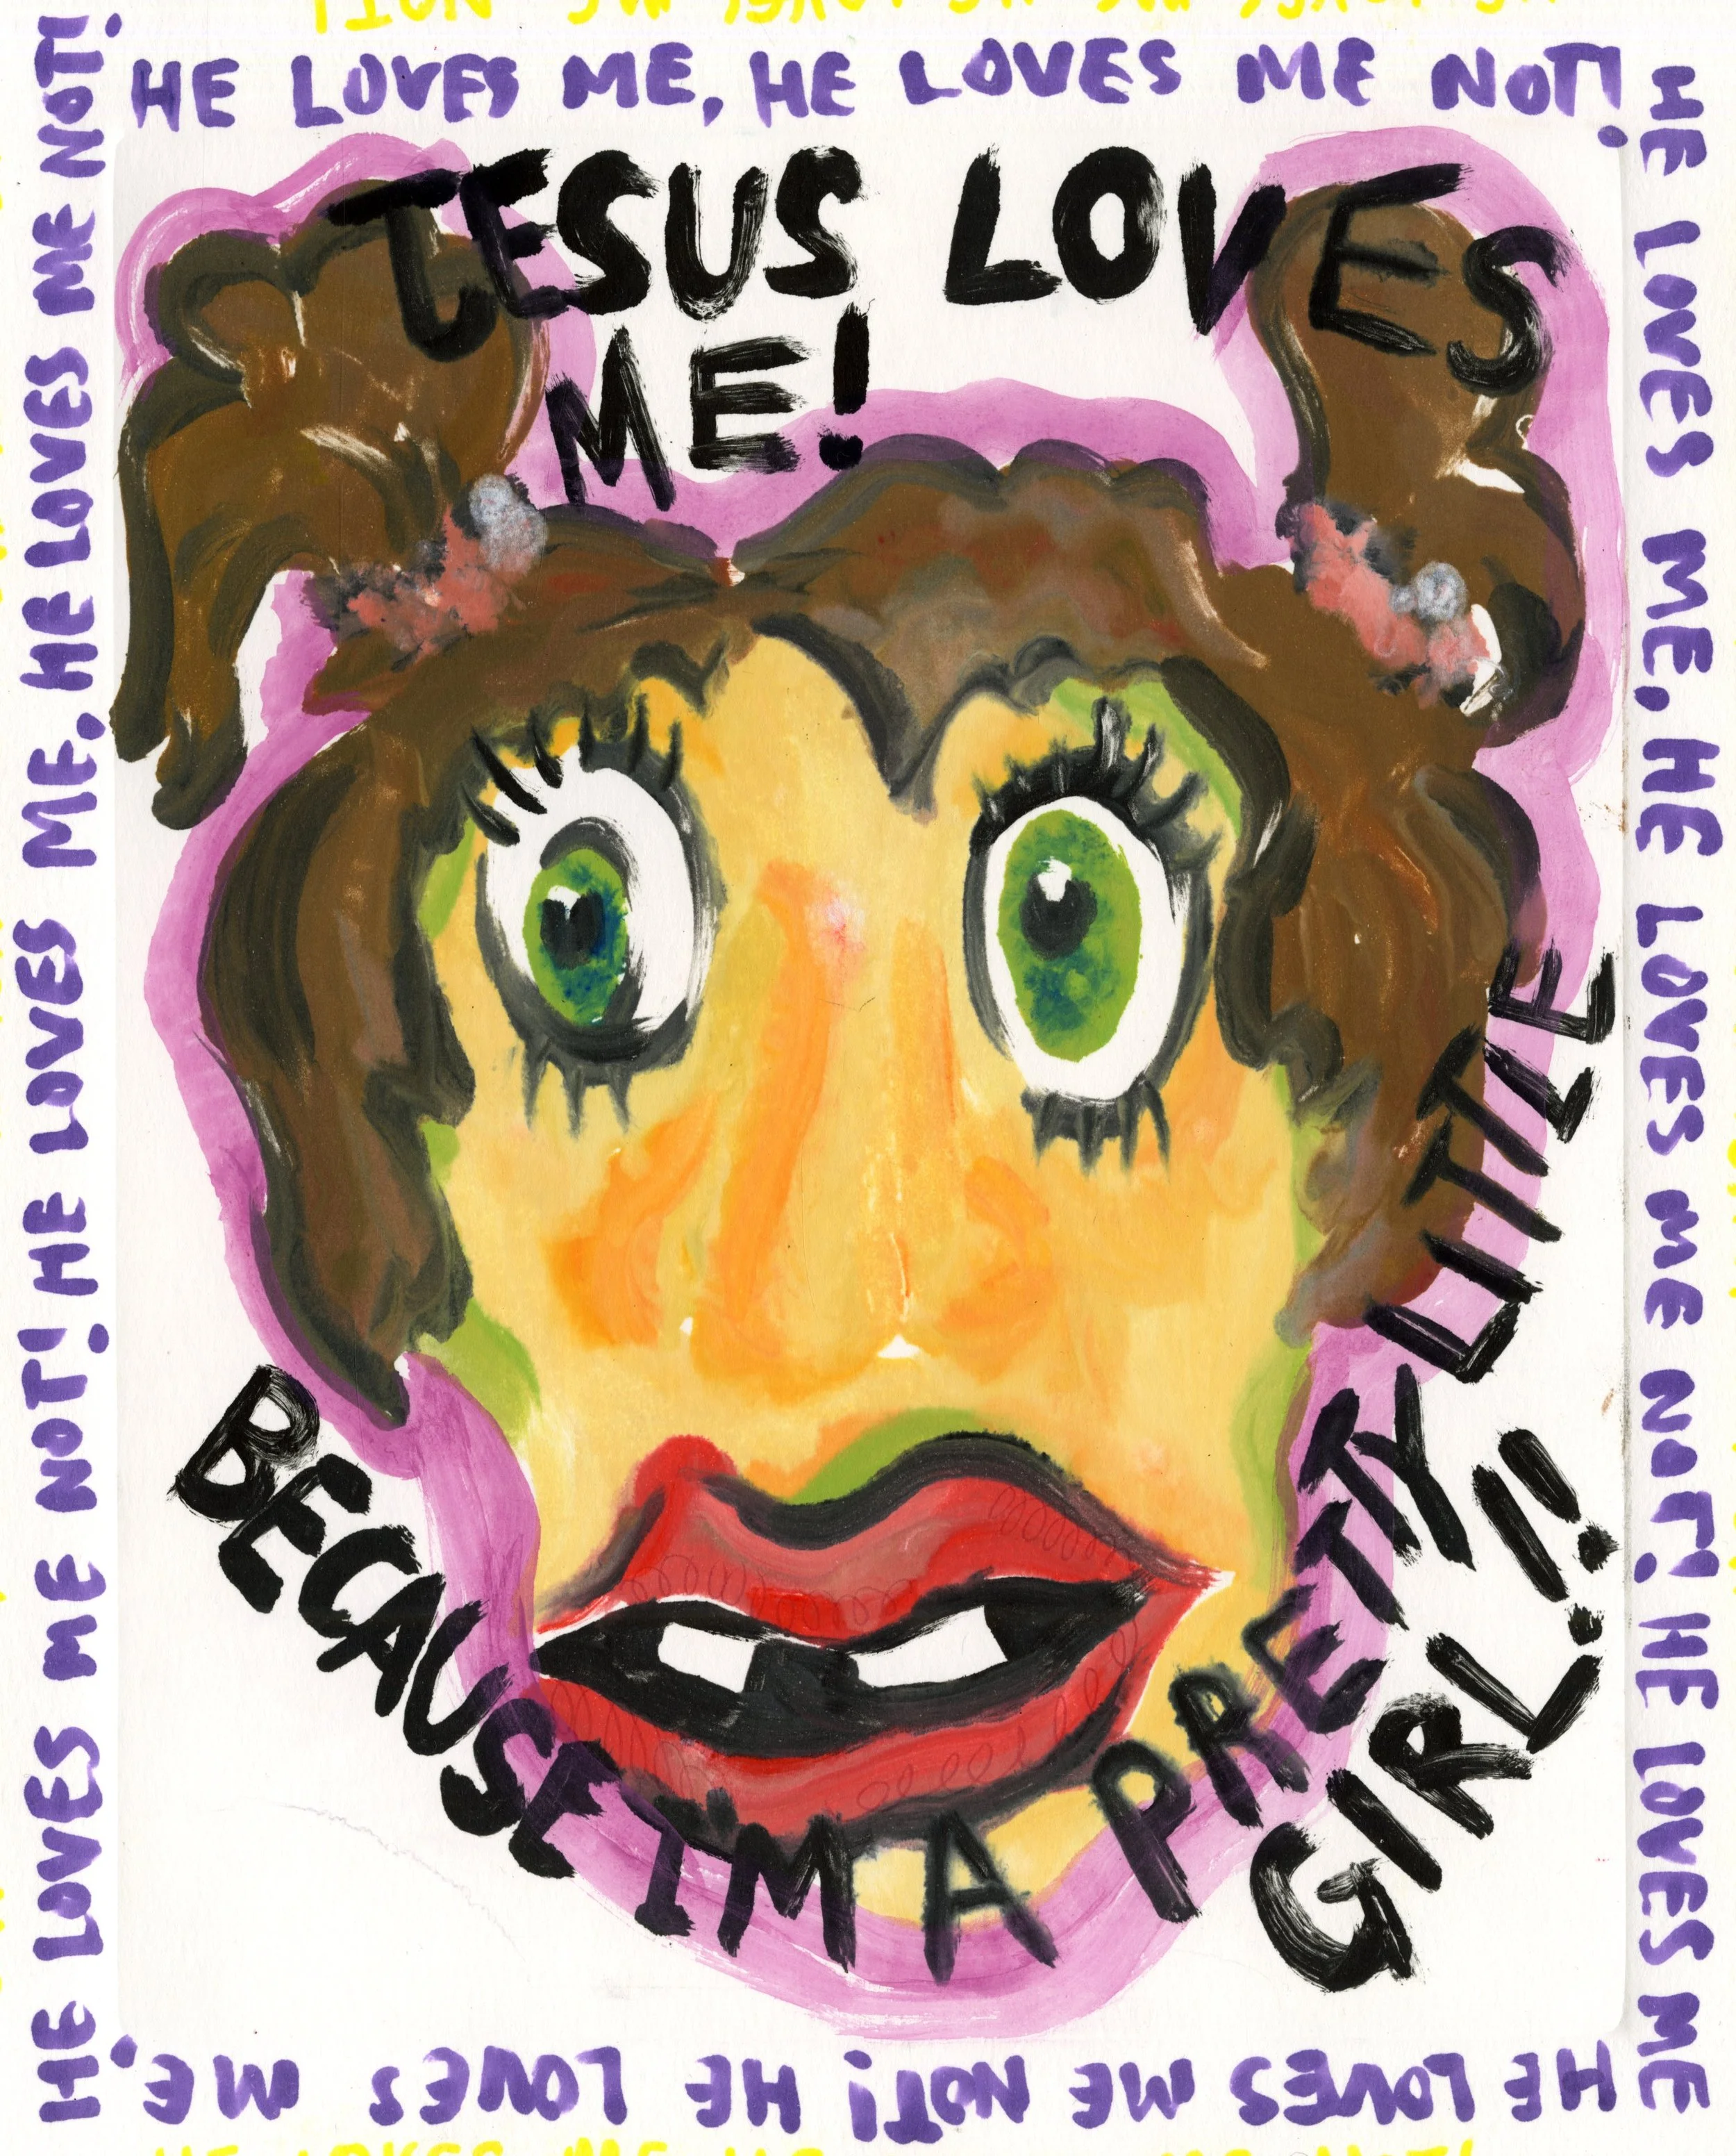 HE LOVES ME, HE LOVES ME NOT!
HE LOVES ME, HE LOVES ME NOT! HE LOVES ME
HE LOVES ME NOT! HE LOVES ME,
HE LOVES ME NOT! HE LOVES ME, HE LOVES ME NOT!
JESUS LOVES
ME!
BECAUSE I'M A PRETTY LITTLE
GIRL!!